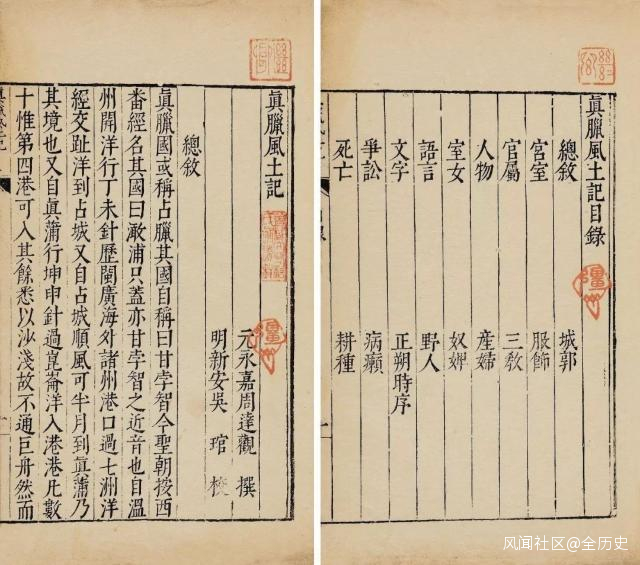 眞臘風土記目錄
總敘 城郭
宮室 服飾
官屬 三敎
人物 産婦
室女 奴婢
語言 野人
文字 正朔時序
爭訟 病癩
死亡 耕種
眞臘風土記
元永嘉周達觀 撰
明新安吳 琯 校
總敘
眞臘國或稱占臘其國自稱曰甘孛智今聖朝按西
番經名其國曰澉浦只蓋亦甘孛智之近音也自溫
州開洋行丁未針歷閩廣海外諸州港口過七洲洋
經交趾洋到占城又自占城順風可半月到眞蒲乃
其境也又自眞蒲行坤申針過崑崙洋入港港凡數
十惟第四港可入其餘悉以沙淺故不通巨舟然而
风闻社区@全历史